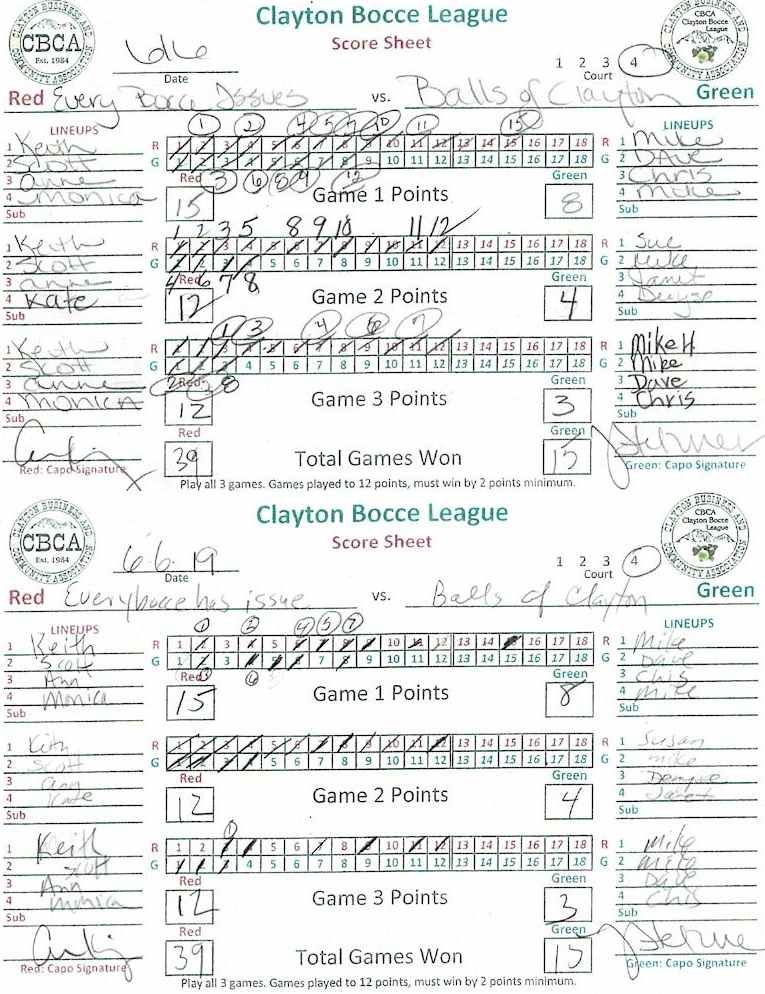 CLAYTON BUSINESS AND COMMUNITY ASSOCIATION
CBCA
Est. 1984
Clayton Bocce League
Score Sheet
CLAYTON BUSINESS AND COMMUNITY ASSOCIATION
CBCA
Clayton Bocce League
6/6
Date
1 2 3 4
Court
Red Every Bocce Issues vs. Balls of Clayton Green
LINEUPS
1 Keith
2 Scott
3 Anne
4 Monica
Sub
1 2 4 5 7 10 11 15
R 1 2 3 4 5 6 7 8 9 10 11 12 13 14 15 16 17 18 R
G 1 2 3 4 5 6 7 8 9 10 11 12 13 14 15 16 17 18 G
3 6 8 9 12
Red Game 1 Points Green
15 8
LINEUPS
1 Mike
2 Dave
3 Chris
4 Mike
Sub
1 Keith
2 Scott
3 Anne
4 Kate
Sub
1 2 3 5 8 9 10 11 12
R 1 2 3 4 5 6 7 8 9 10 11 12 13 14 15 16 17 18 R
G 1 2 3 4 5 6 7 8 9 10 11 12 13 14 15 16 17 18 G
4 6 7 8
Red Game 2 Points Green
12 4
1 Sue
2 Mike
3 Janet
4
Sub
1 Keith
2 Scott
3 Anne
4 Monica
Sub
1 3 4 6 7
R 1 2 3 4 5 6 7 8 9 10 11 12 13 14 15 16 17 18 R
G 1 2 3 4 5 6 7 8 9 10 11 12 13 14 15 16 17 18 G
2 8
Red Game 3 Points Green
12 3
1 Mike H
2 Mike
3 Dave
4 Chris
Sub
Red: Capo Signature
X
Red Total Games Won Green
39 15
Green: Capo Signature
Play all 3 games. Games played to 12 points, must win by 2 points minimum.
CLAYTON BUSINESS AND COMMUNITY ASSOCIATION
CBCA
Est. 1984
Clayton Bocce League
Score Sheet
CLAYTON BUSINESS AND COMMUNITY ASSOCIATION
CBCA
Clayton Bocce League
6-6-19
Date
1 2 3 4
Court
Red Everybocce has issue vs. Balls of Clayton Green
LINEUPS
1 Keith
2 Scott
3 Ann
4 Monica
Sub
1 2 4 5 7
R 1 2 3 4 5 6 7 8 9 10 11 12 13 14 15 16 17 18 R
G 1 2 3 4 5 6 7 8 9 10 11 12 13 14 15 16 17 18 G
3 6
Red Game 1 Points Green
15 8
LINEUPS
1 Mike
2 Dave
3 Chis
4 Mike
Sub
1 Kith
2 Scott
3 Ann
4 Kate
Sub
R 1 2 3 4 5 6 7 8 9 10 11 12 13 14 15 16 17 18 R
G 1 2 3 4 5 6 7 8 9 10 11 12 13 14 15 16 17 18 G
Red Game 2 Points Green
12 4
1 Susan
2 Mike
3
4 Janet
Sub
1 Keith
2 Scott
3 Ann
4 Monica
Sub
1
R 1 2 3 4 5 6 7 8 9 10 11 12 13 14 15 16 17 18 R
G 1 2 3 4 5 6 7 8 9 10 11 12 13 14 15 16 17 18 G
Red Game 3 Points Green
12 3
1 Mike
2 Mike
3 Dave
4 Chis
Sub
Red: Capo Signature
Red Total Games Won Green
39 15
Green: Capo Signature
Play all 3 games. Games played to 12 points, must win by 2 points minimum.